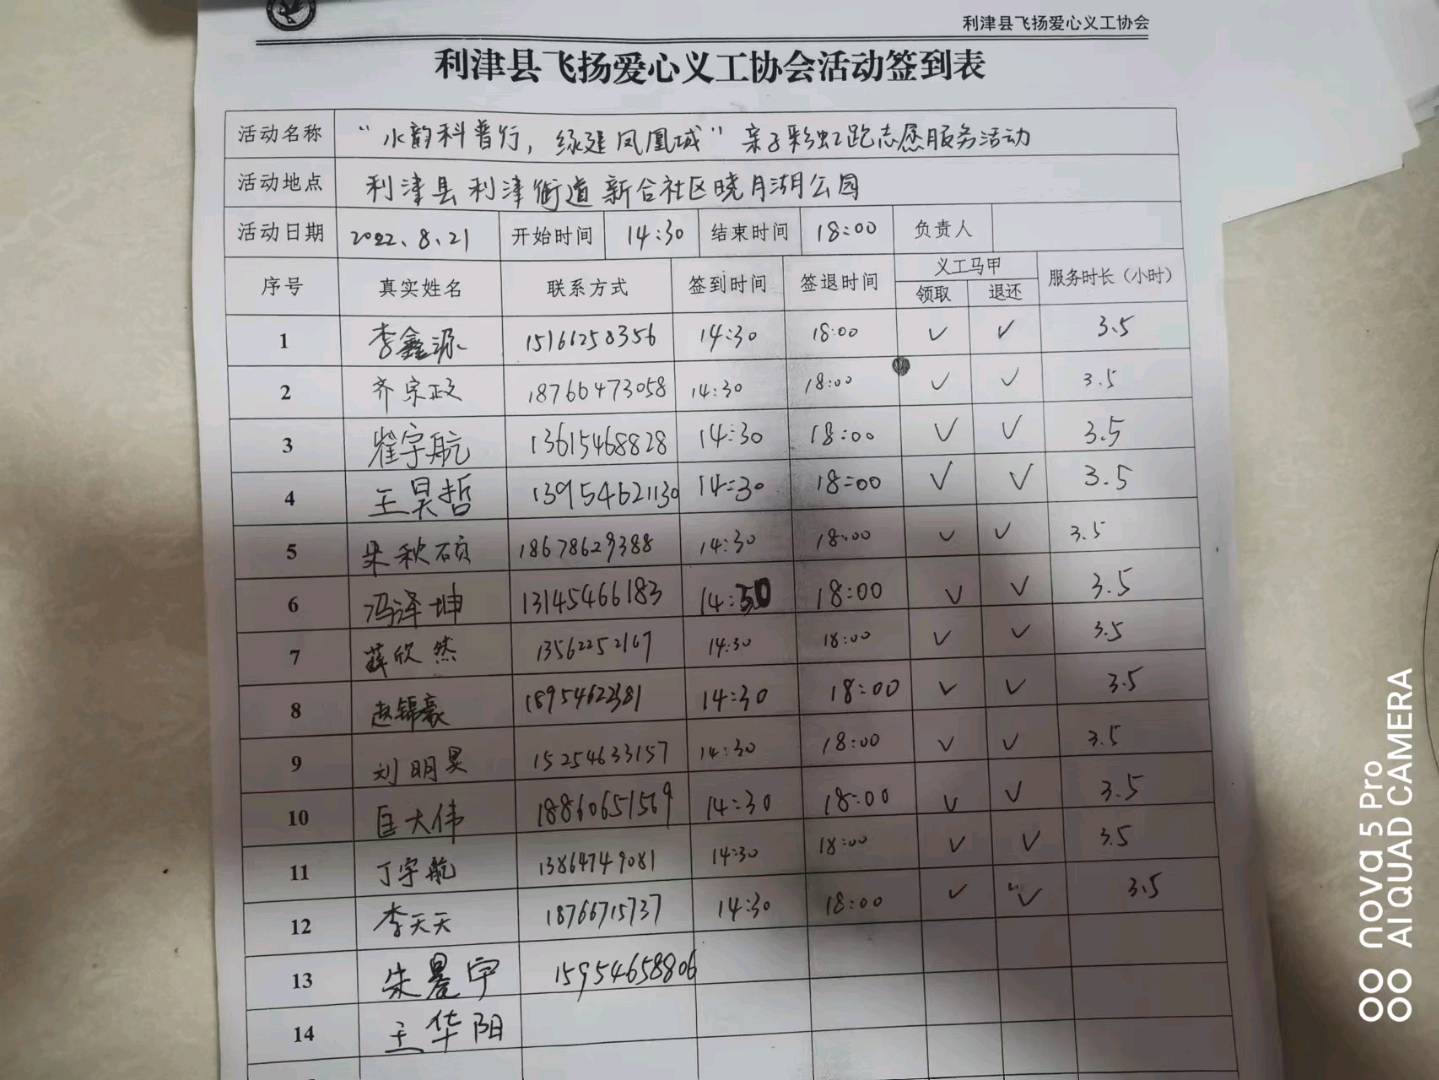 利津县飞扬爱心义工协会
利津县飞扬爱心义工协会活动签到表
活动名称 “水韵科普行，绿延凤凰城”亲子彩虹跑志愿服务活动
活动地点 利津县利津街道新合社区晓月湖公园
活动日期 2022、8、21 开始时间 14:30 结束时间 18:00 负责人
序号 真实姓名 联系方式 签到时间 签退时间 义工马甲 服务时长（小时）
领取 退还
1 李鑫源 15166258356 14:30 18:00 ✓ ✓ 3.5
2 齐宗政 18766473058 14:30 18:00 ✓ ✓ 3.5
3 崔宇航 13615468828 14:30 18:00 ✓ ✓ 3.5
4 王昊哲 13954621130 14:30 18:00 ✓ ✓ 3.5
5 朱秋硕 18678629388 14:30 18:00 ✓ ✓ 3.5
6 冯泽坤 13145466183 14:30 18:00 ✓ ✓ 3.5
7 薛欣然 13562252167 14:30 18:00 ✓ ✓ 3.5
8 赵锦豪 18954622381 14:30 18:00 ✓ ✓ 3.5
9 刘明昊 15254633157 14:30 18:00 ✓ ✓ 3.5
10 匡大伟 18860651569 14:30 18:00 ✓ ✓ 3.5
11 丁宇航 13864749081 14:30 18:00 ✓ ✓ 3.5
12 李天天 18766715737 14:30 18:00 ✓ ✓ 3.5
13 朱晏宇 15954658806
14 王华阳
nova 5 Pro
AI QUAD CAMERA